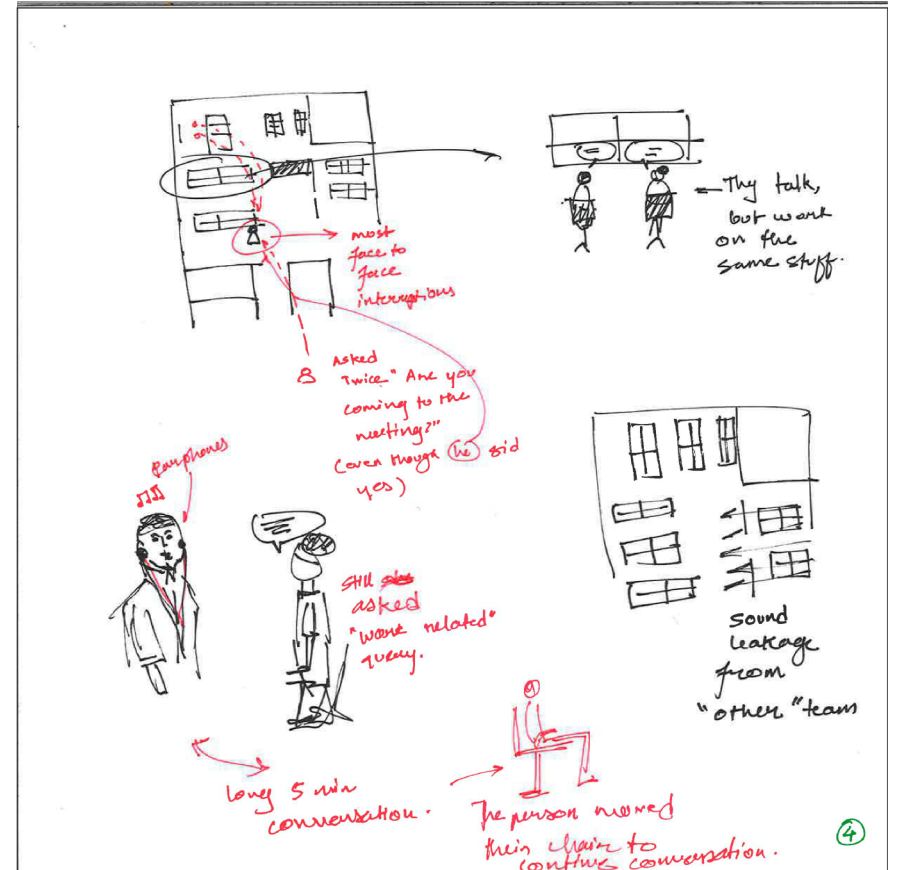 most
face to
face
interruptions
They talk,
but work
on the
same stuff.
Asked
Twice "Are you
coming to the
meeting?"
(even though he sid
yes)
Earphones
Still
asked
"work related"
query.
sound
leakage
from
"other" team
long 5 min
conversation.
The person moved
their chair to
continue conversation.
4